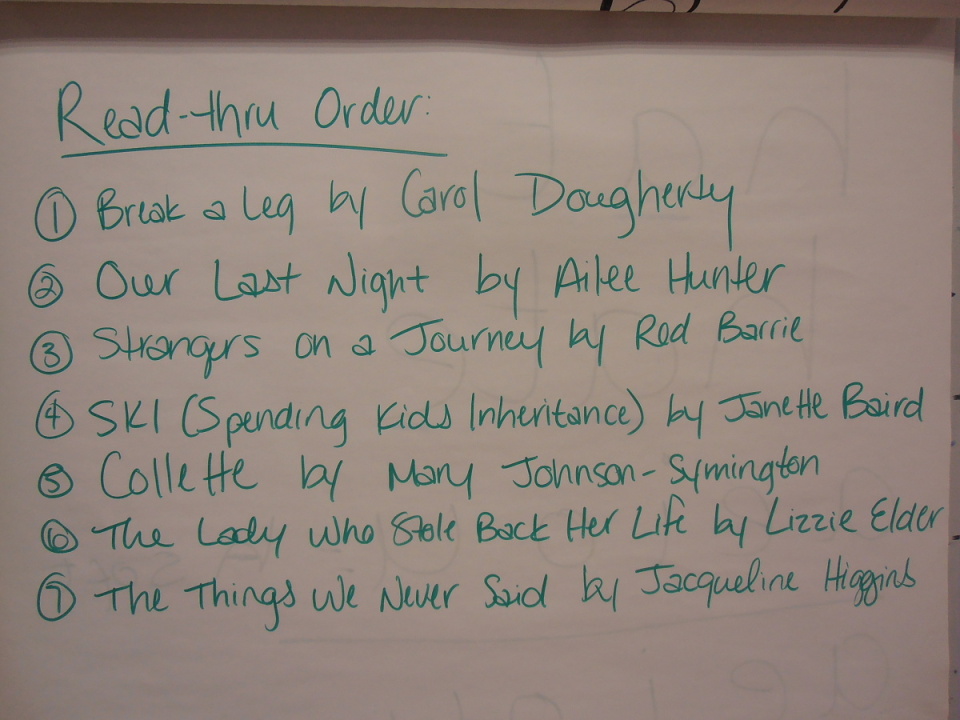 Read-thru Order:
① Break a Leg by Carol Dougherty
② Our Last Night by Ailee Hunter
③ Strangers on a Journey by Rod Barrie
④ SKI (Spending Kids Inheritance) by Janette Baird
⑤ Collette by Mary Johnson-Symington
⑥ The Lady Who Stole Back Her Life by Lizzie Elder
⑦ The Things We Never Said by Jacqueline Higgins